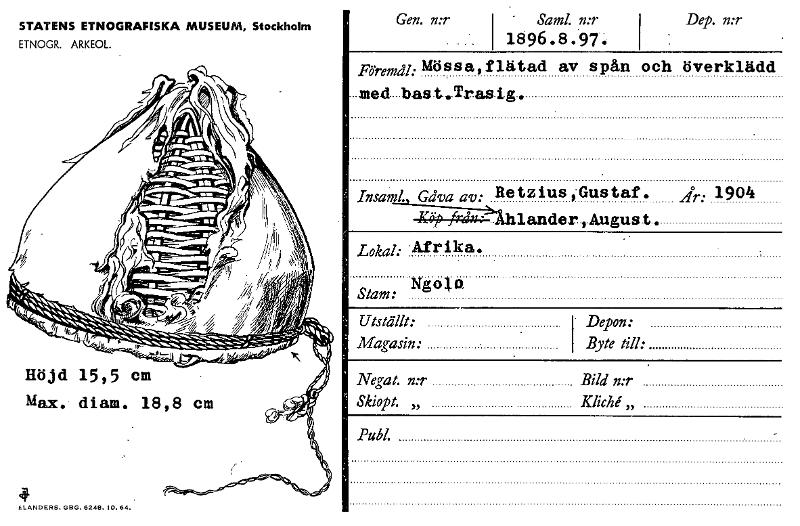 STATENS ETNOGRAFISKA MUSEUM, Stockholm
ETNOGR. ARKEOL.
Höjd 15,5 cm
Max. diam. 18,8 cm
ELANDERS. GBG. 6248. 10. 64.
Gen. n:r
Saml. n:r
Dep. n:r
1896.8.97.
Föremål: Mössa,flätad av spån och överklädd
med bast.Trasig.
Insaml., Gåva av: Retzius,Gustaf. År: 1904
Köp från: Åhlander,August.
Lokal: Afrika.
Stam: Ngolo
Utställt: Depon:
Magasin: Byte till:
Negat. n:r Bild n:r
Skiopt. „ Kliché „
Publ.